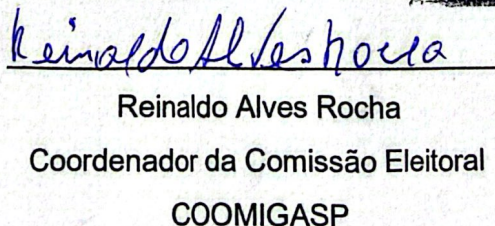 Reinaldo Alves Rocha
Reinaldo Alves Rocha
Coordenador da Comissão Eleitoral
COOMIGASP